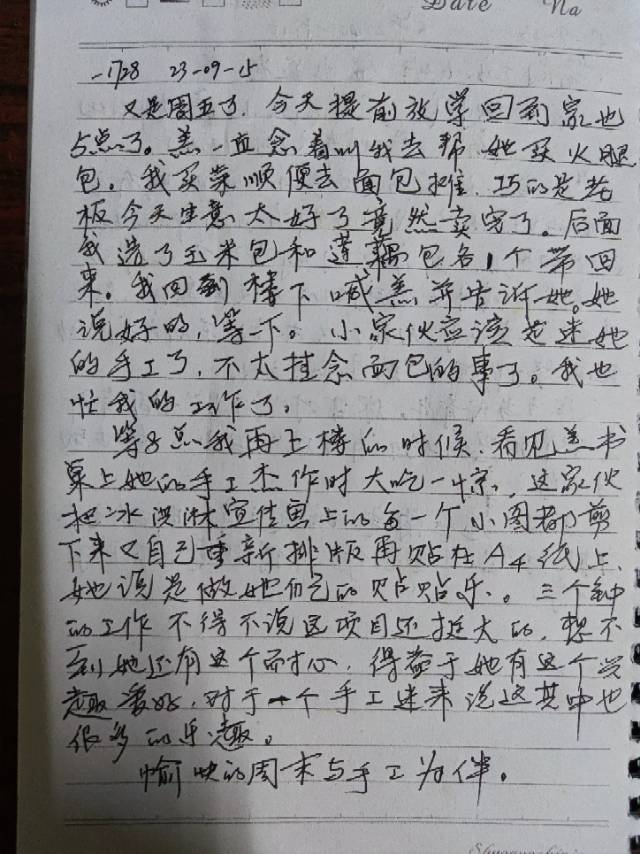 Date Na
-1728 23-09-15
又是周五了，今天提前放学回到家也
5点了。羔一直念着叫我去帮她买火腿
包。我买菜顺便去面包摊，巧的是老
板今天生意太好了竟然卖完了。后面
我选了玉米包和莲藕包各1个带回
来。我回到楼下喊羔并告诉她。她
说好的，等一下。小家伙应该是迷她
的手工了，不太挂念面包的事了。我也
忙我的工作了。
等8点我再上楼的时候，看见羔书
桌上她的手工杰作时大吃一惊，这家伙
把冰淇淋宣传画上的每一个小图都剪
下来又自己重新排版再贴在A4纸上，
她说是做她自己的贴贴乐。三个钟
的工作不得不说这项目还挺大的，想不
到她还有这个耐心，得益于她有这个兴
趣爱好，对于一个手工迷来说这其中也
很多的乐趣。
愉快的周末与手工为伴。